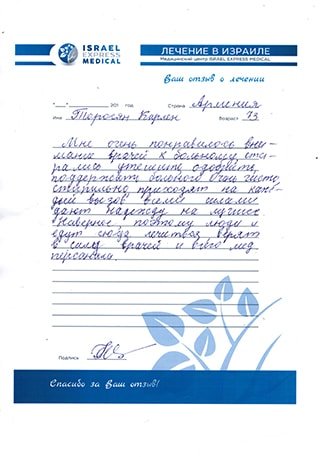 ISRAEL
EXPRESS
MEDICAL
ЛЕЧЕНИЕ В ИЗРАИЛЕ
Медицинский центр ISRAEL EXPRESS MEDICAL
Ваш отзыв о лечении
"__"________201 год. Страна Армения
Имя Торосян Карлен Возраст 73
Мне очень понравилось вни-
мание врачей к больному, ста-
рались утешить, ободрить,
поддержать больного. Очень
приходят на каж-
дый вызов всеми силами
дают надежду на лучшее
Наверное, поэтому люди и
едут сюда лечиться, верят
в силу врачей и всего мед.
персонала.
Подпись
Спасибо за Ваш отзыв!